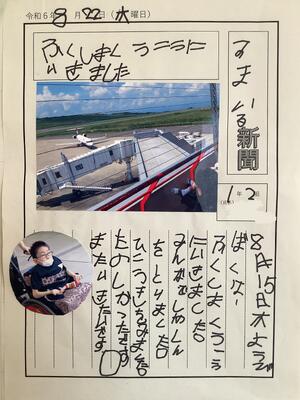 令和6年8月22日(木曜日)
ふくしまくうこうに
いきました
すまいる新聞
1年2組
8月15日木ようび
ぼくは
ふくしまくうこう
にいきました。
みんなでしゃしん
をとりました。
ひこうきをみました。
たのしかったです。
またいきたいです。